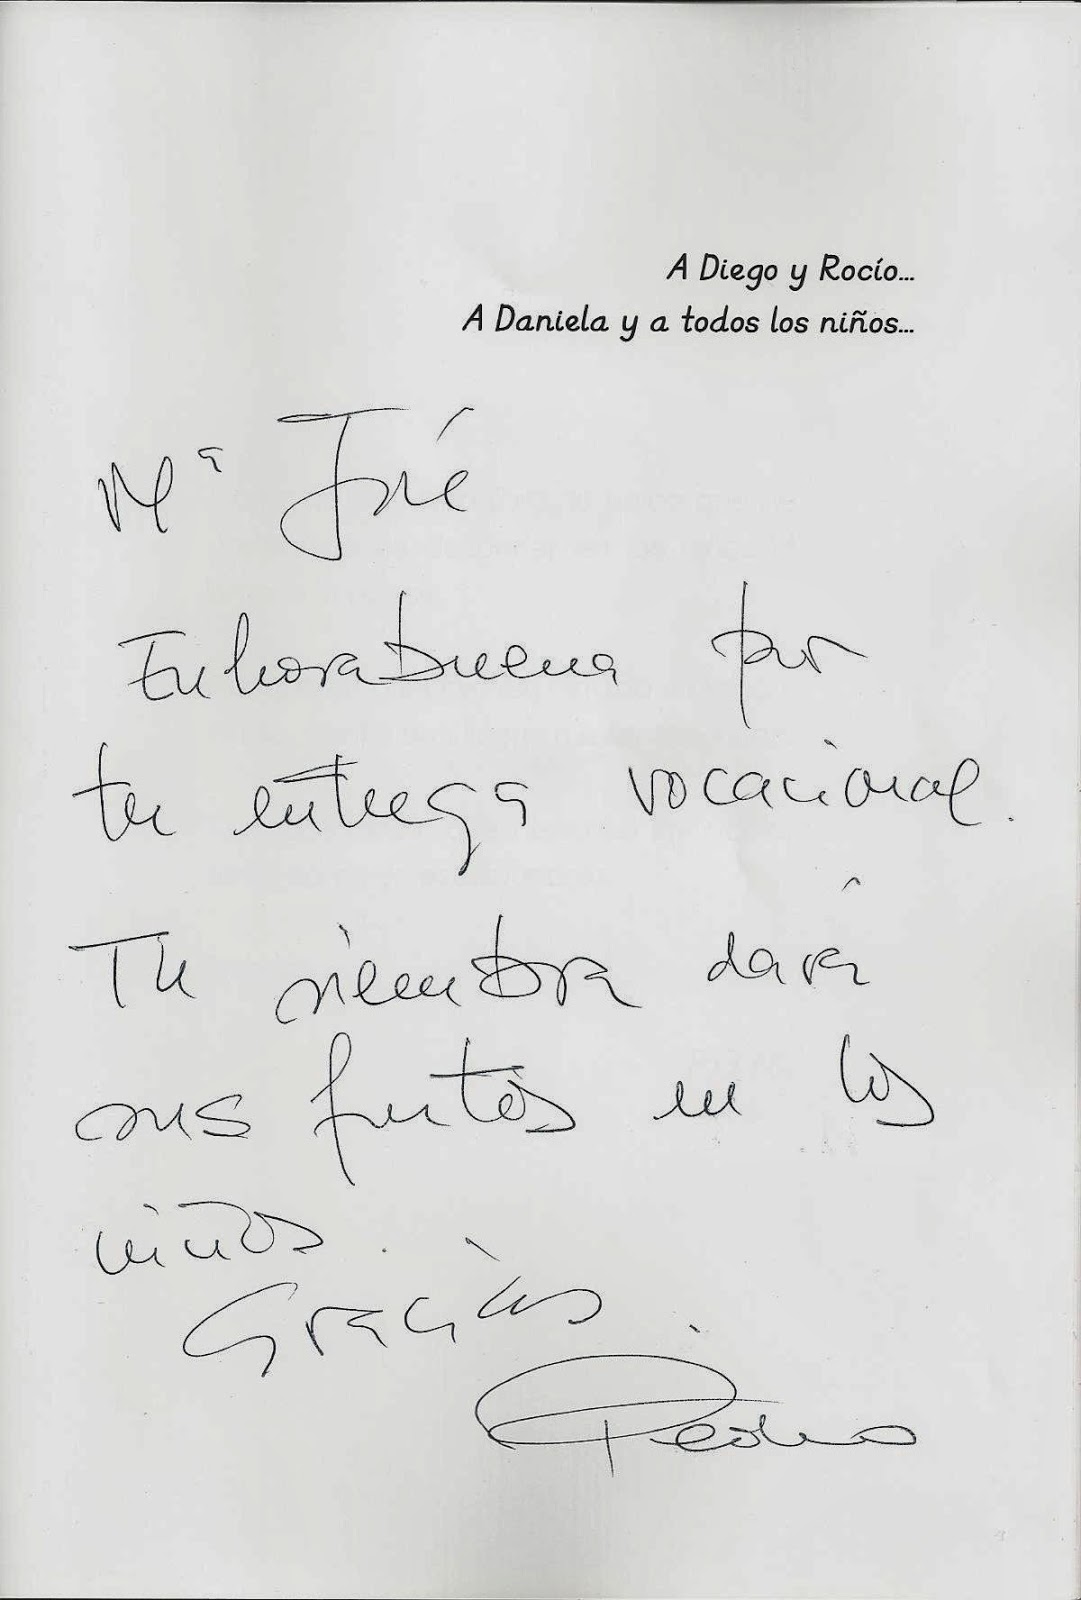 A Diego y Rocío...
A Daniela y a todos los niños...
Mª José
Enhorabuena por
tu entrega vocacional.
Tu siembra dará
sus frutos en los
niños.
Gracias.
Pedro